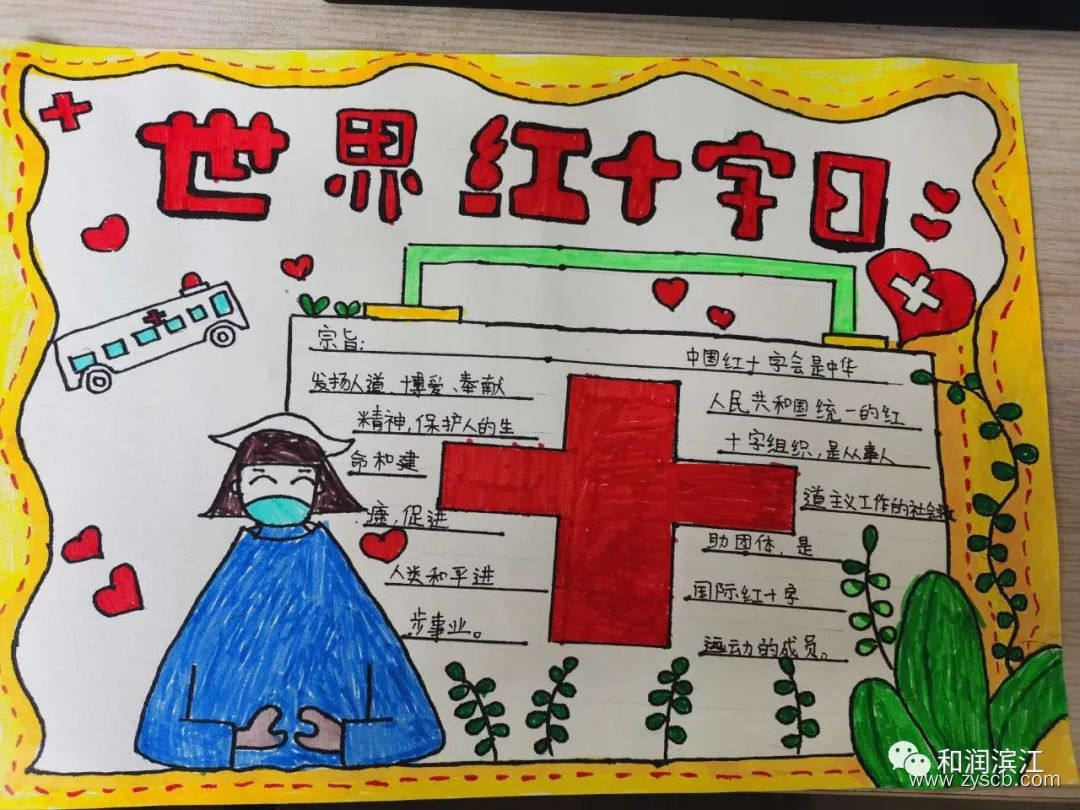 世界红十字日
宗旨:
发扬人道、博爱、奉献
精神,保护人的生
命和建
康,促进
人类和平进
步事业。
中国红十字会是中华
人民共和国统一的红
十字组织,是从事人
道主义工作的社会救
助团体,是
国际红十字
运动的成员。
和润滨江
www.zyscb.com